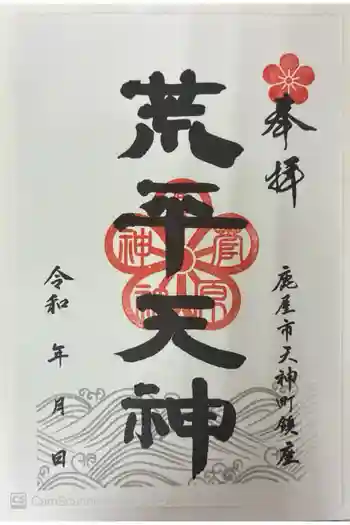 奉拝
鹿屋市天神町鎮座
荒平天神
令和 年 月 日
CS CamScanner